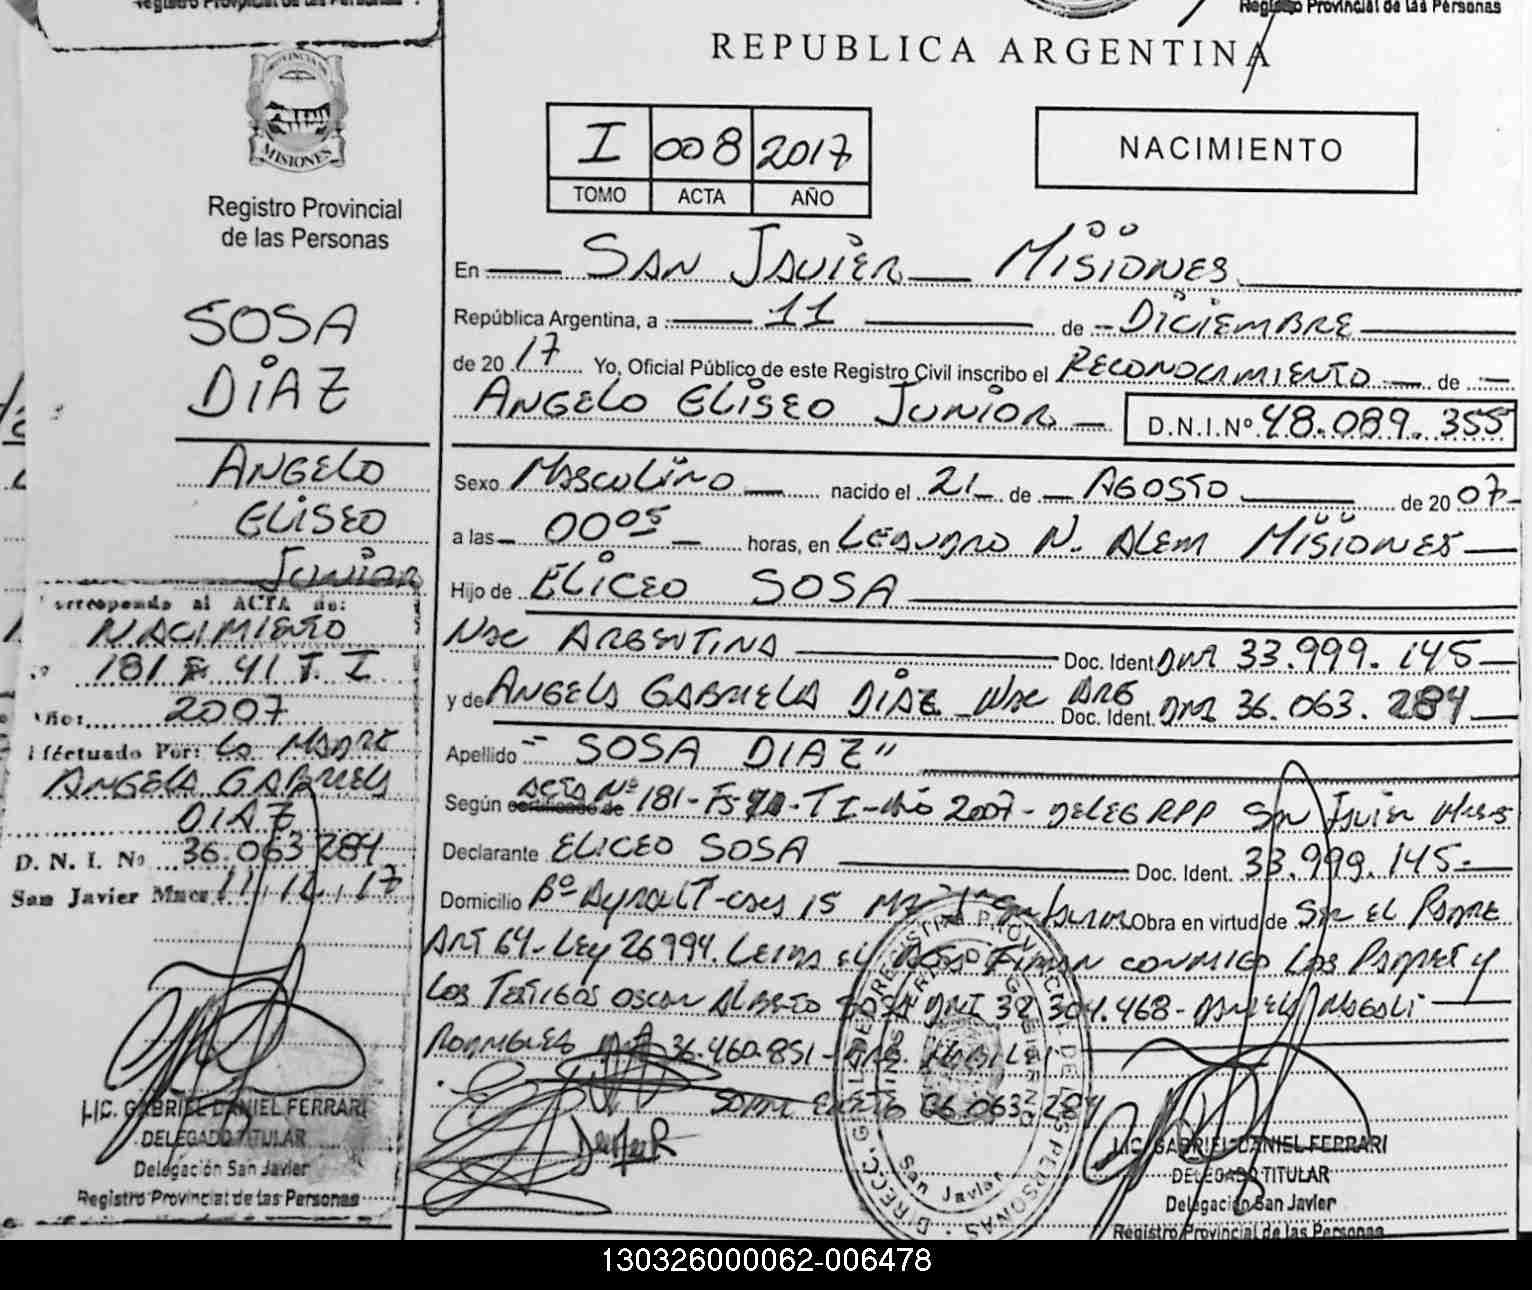 Registro Provincial de las Personas
REPUBLICA ARGENTINA
PROVINCIA DE
MISIONES
Registro Provincial
de las Personas
SOSA
DIAZ
ANGELO
ELISEO
JUNIOR
corresponde al ACTA de:
NACIMIENTO
181 F 41 T. I
Año: 2007
Efectuado Por: La MADRE
ANGELA GABRIELA
DIAZ
D. N. I. No 36.063 284
San Javier Mnes 11/12/17
LIC. GABRIEL DANIEL FERRARI
DELEGADO TITULAR
Delegación San Javier
Registro Provincial de las Personas
I 008 2017
TOMO ACTA AÑO
NACIMIENTO
En SAN JAVIER MISIONES
República Argentina, a : 11 de DICIEMBRE
de 20 17 Yo, Oficial Público de este Registro Civil inscribo el RECONOCIMIENTO de
ANGELO ELISEO JUNIOR D.N.I.Nº 48.089.355
Sexo MASCULINO nacido el 21 de AGOSTO de 20 07
a las 00 05 horas, en LEANDRO N. ALEM MISIONES
Hijo de ELICEO SOSA
Nac ARGENTINA Doc. Ident DNI 33.999.145
y de ANGELA GABRIELA DIAZ Nac ARG Doc. Ident. DNI 36.063.284
Apellido "SOSA DIAZ"
Según certificado de ACTA Nº 181- T I- Año 2007- DELEG RPP San Javier Mnes
Declarante ELICEO SOSA Doc. Ident. 33.999.145-
Domicilio Bº Ayrault-casa 15 Mz San Javier Obra en virtud de Ser EL PADRE
ART 64-Ley 26994. LEIDA EL ACTA FIRMAN CONMIGO Los PADRES y
Los TESTIGOS OSCAR ALBERTO SOSA DNI 32 304.468- DANIELA MAGALI
RODRIGUES DNI 36.460.851- ARG.
36 063 284
DIRECC. GRAL. DE REGISTRO PROVINCIAL DE LAS PERSONAS
San Javier
LIC. GABRIEL DANIEL FERRARI
DELEGADO TITULAR
Delegación San Javier
Registro Provincial de las Personas
130326000062-006478